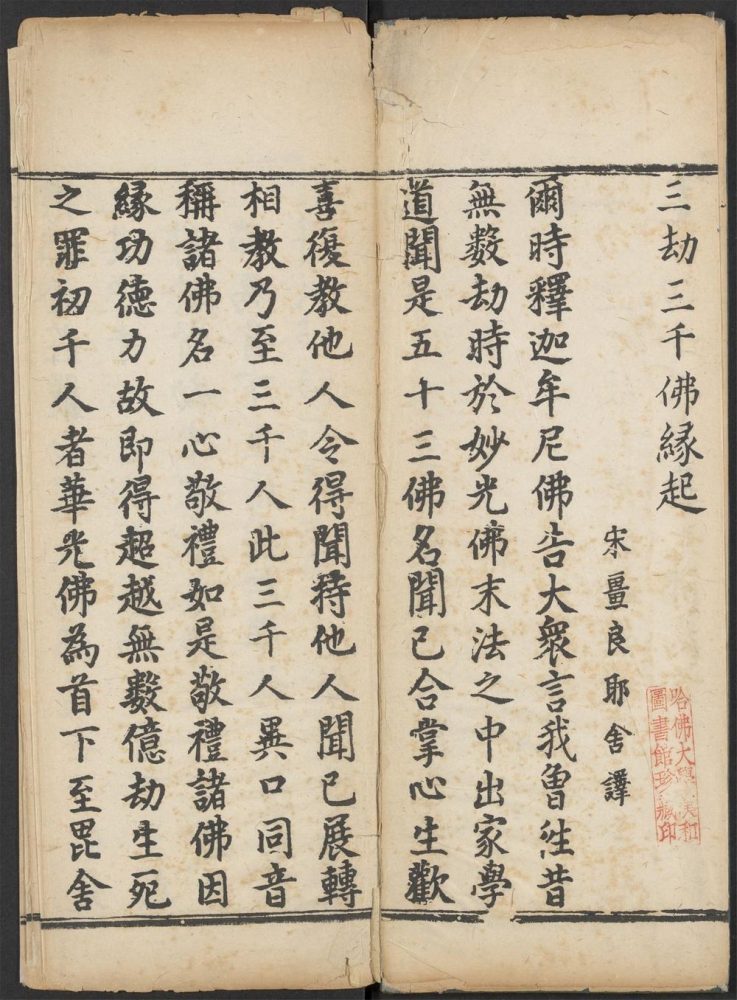 三劫三千佛縁起
宋畺良耶舍譯
爾時釋迦牟尼佛告大衆言我曾往昔
無數劫時於妙光佛末法之中出家學
道聞是五十三佛名聞已合掌心生歡
喜復教他人令得聞持他人聞已展轉
相教乃至三千人此三千人異口同音
稱諸佛名一心敬禮如是敬禮諸佛因
縁功德力故即得超越無數億劫生死
之罪初千人者華光佛為首下至毘舍
哈佛大學漢和
圖書館珍藏印